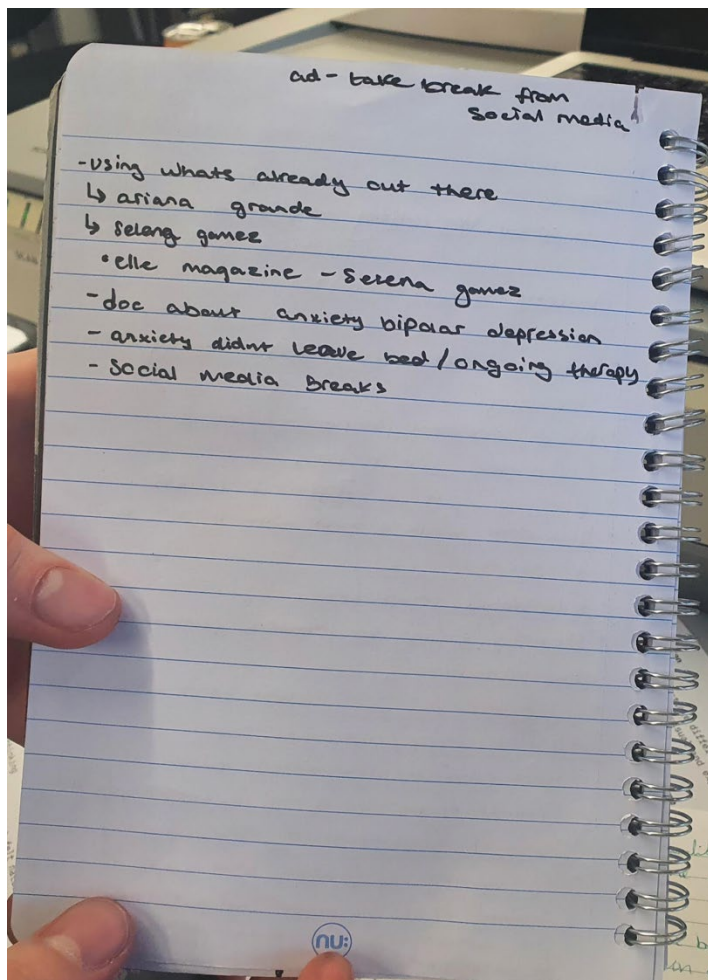 ad - take break from
social media
-using whats already out there
↳ ariana grande
↳ selena gomez
•elle magazine - Serena gomez
-doc about anxiety bipolar depression
- anxiety didnt leave bed/ongoing therapy
- Social media Breaks
nu: